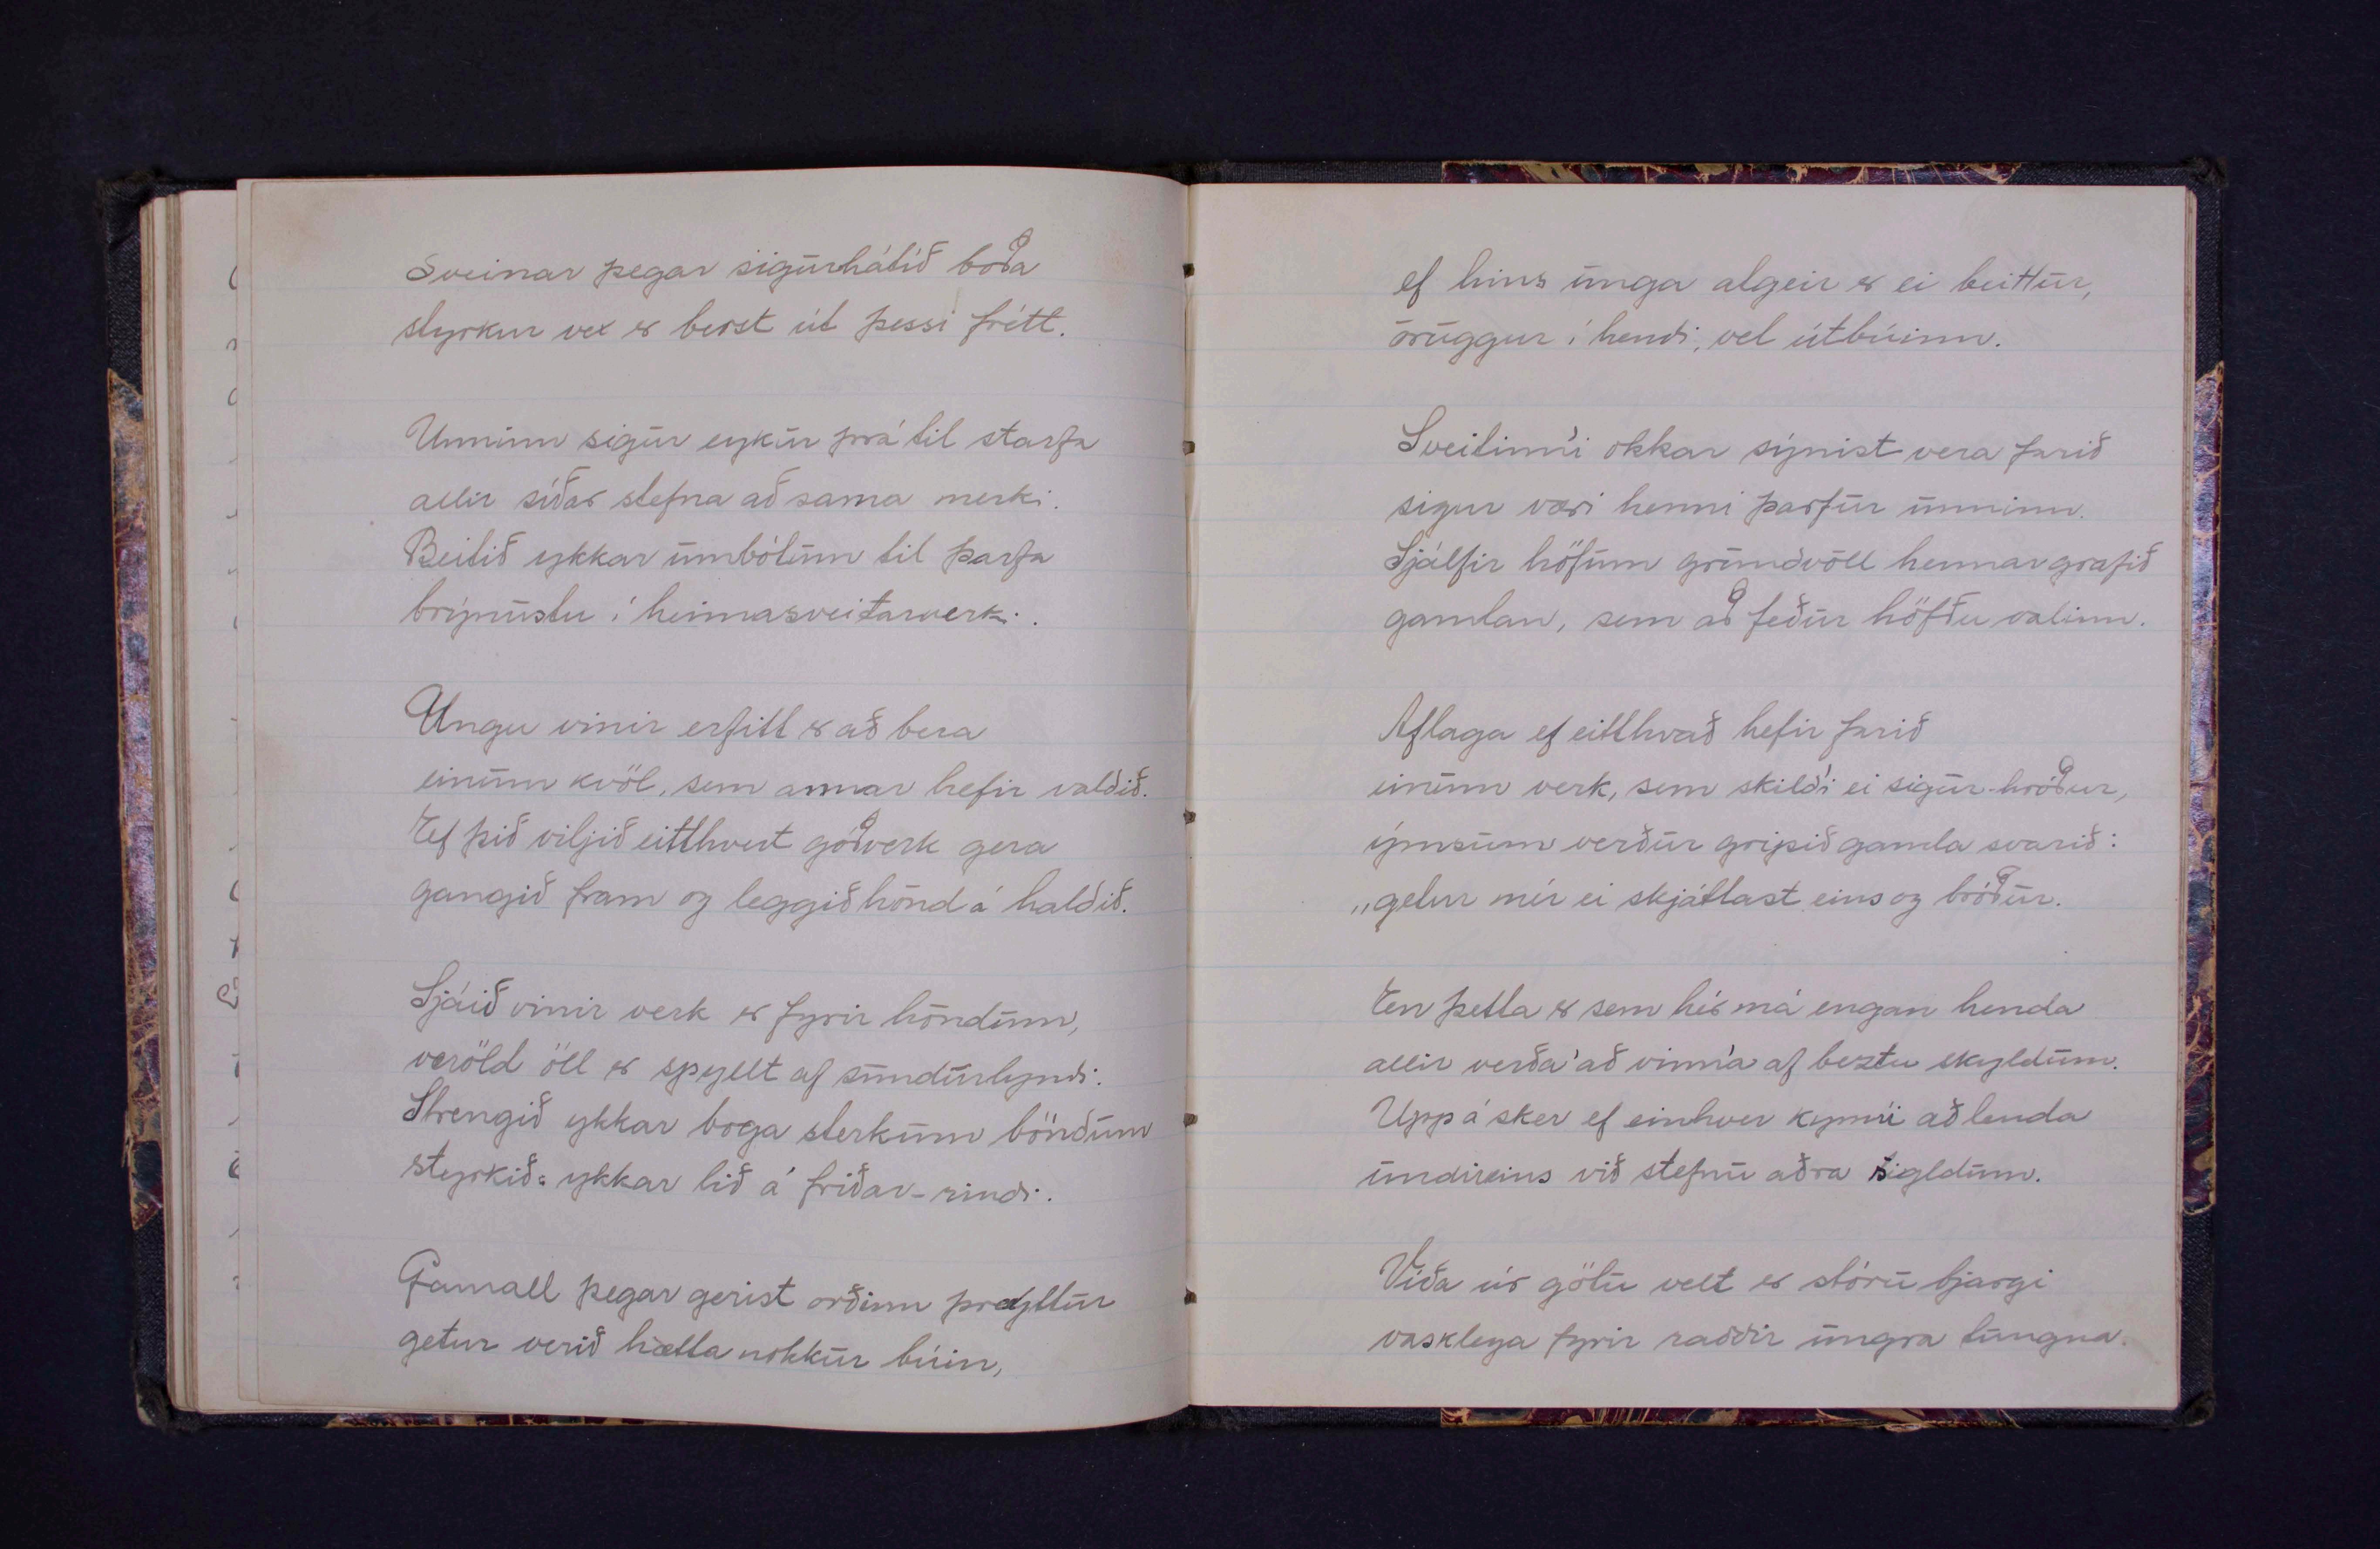 Sveinar þegar sigurhátíð boða
styrkur vex er berst út þessi frétt.
Unninn sigur eykur þrá til starfa
allir síðar stefna að sama merki.
Beitið ykkar umbótum til þarfa
brýnustu í heimasveitarverki.
Ungu vinir erfitt er að bera
einum kvöl, sem annar hefir valdið.
Ef þið viljið eitthvert góðverk gera
gangið fram og leggið hönd á haldið.
Sjáið vinir verk er fyrir höndum,
veröld öll er spyllt af sundurlyndi.
Strengið ykkar boga sterkum böndum
styrkið ykkar lið á friðar-rindi.
Gamall þegar gerist orðinn þreyttur
getur verið hætta nokkur búin,
ef hins unga algeir er ei beittur,
öruggur í hendi, vel útbúinn.
Sveitinni okkar sýnist vera farið
sigur væri henni þarfur unninn.
Sjálfir höfum grundvöll hennar grafið
gamlan, sem að feður höfðu valinn.
Aflaga ef eitthvað hefir farið
einum verk, sem skildi ei sigur-hróður,
ýmsum verður gripið gamla svarið:
„getur mér ei skjátlast eins og bróður.
En þetta er sem hér má engan henda
allir verða að vinna af beztu skyldum.
Upp á sker ef einhver kynni að lenda
undireins við stefnu aðra sigldum.
Víða úr götu velt er stóru bjargi
vasklega fyrir raddir ungra tungna.